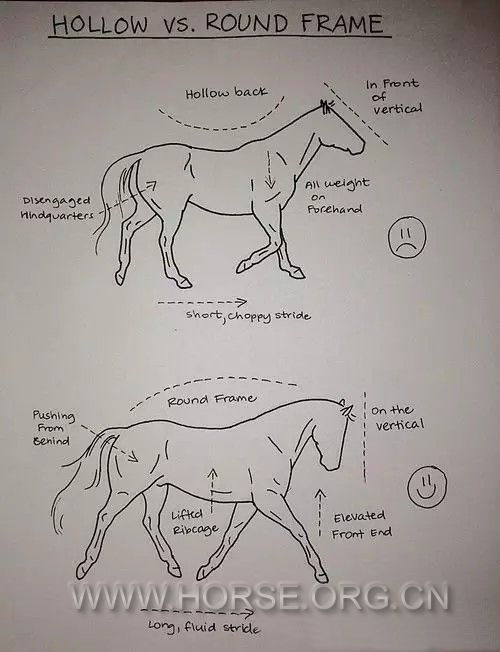 HOLLOW VS. ROUND FRAME
Hollow back
In Front
of
vertical
Disengaged
Hindquarters
All weight
on
Forehand
short, choppy stride
Round Frame
On the
vertical
Pushing
From
Behind
Lifted
Ribcage
Elevated
Front End
WWW.HORSE.ORG.CN
Long, fluid stride